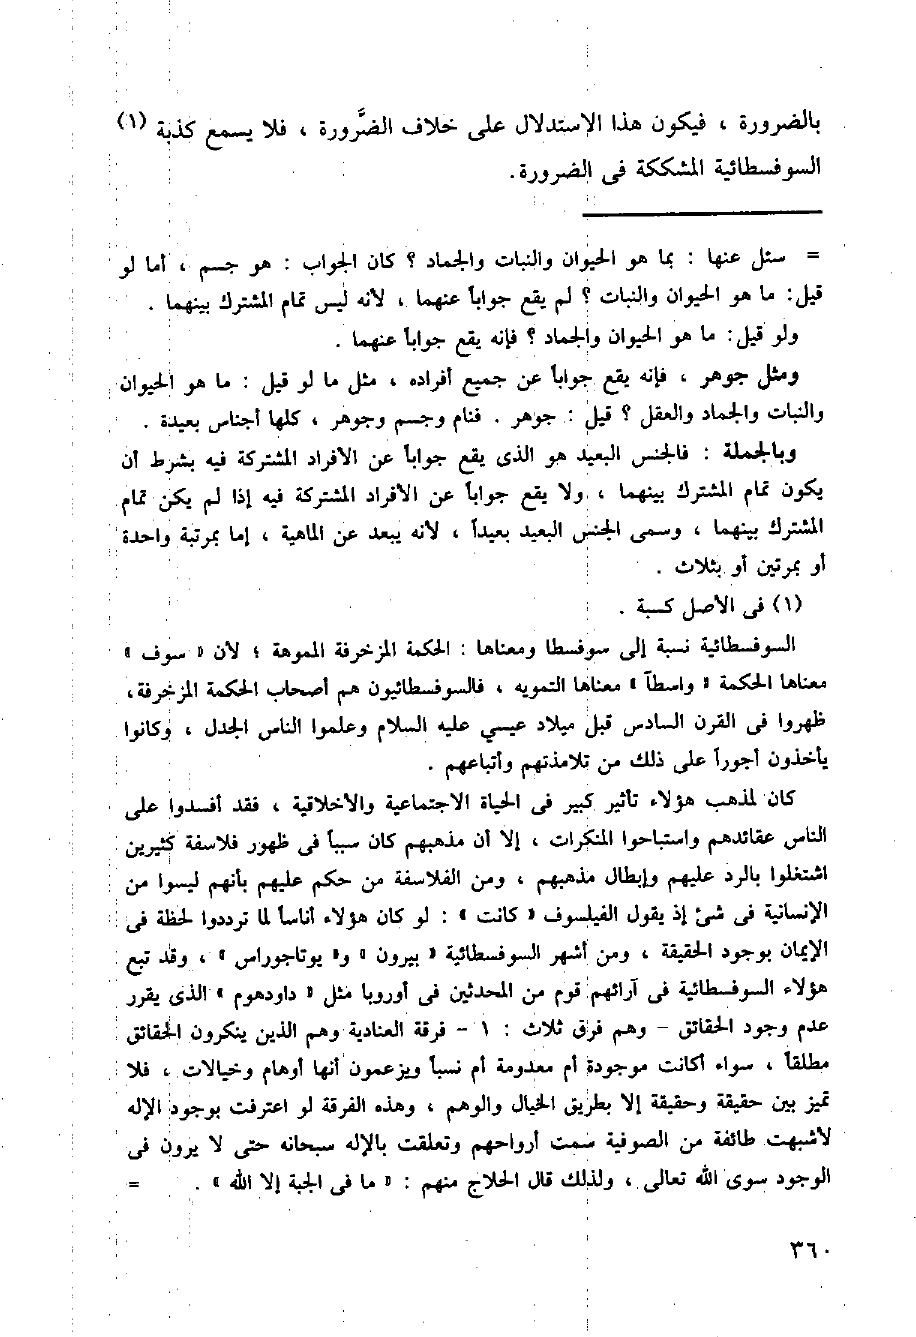 بالضرورة ، فيكون هذا الاستدلال على خلاف الضَّرورة ، فلا يسمع كذبة (١)
السوفسطائية المشككة فى الضرورة.
= سئل عنها : بما هو الحيوان والنبات والجماد ؟ كان الجواب : هو جسم ، أما لو
قيل: ما هو الحيوان والنبات ؟ لم يقع جواباً عنهما ، لأنه ليس تمام المشترك بينهما .
ولو قيل: ما هو الحيوان والجماد ؟ فإنه يقع جواباً عنهما .
ومثل جوهر ، فإنه يقع جواباً عن جميع أفراده ، مثل ما لو قيل : ما هو الحيوان
والنبات والجماد والعقل ؟ قيل : جوهر . فنام وجسم وجوهر ، كلها أجناس بعيدة .
وبالجملة : فالجنس البعيد هو الذى يقع جواباً عن الأفراد المشتركة فيه بشرط أن
يكون تمام المشترك بينهما ، ولا يقع جواباً عن الأفراد المشتركة فيه إذا لم يكن تمام
المشترك بينهما ، وسمى الجنس البعيد بعيداً ، لأنه يبعد عن الماهية ، إما بمرتبة واحدة
أو بمرتين أو بثلاث .
(١) فى الأصل كسبة .
السوفسطائية نسبة إلى سوفسطا ومعناها : الحكمة المزخرفة المموهة ؛ لأن « سوف »
معناها الحكمة « واسطآ » معناها التمويه ، فالسوفسطائيون هم أصحاب الحكمة المزخرفة،
ظهروا فى القرن السادس قبل ميلاد عيسي عليه السلام وعلموا الناس الجدل ، وكانوا
يأخذون أجوراً على ذلك من تلامذتهم وأتباعهم .
كان لمذهب هؤلاء تأثير كبير فى الحياة الاجتماعية والأخلاقية ، فقد أفسدوا على
الناس عقائدهم واستباحوا المنكرات ، إلا أن مذهبهم كان سبباً فى ظهور فلاسفة كثيرين
اشتغلوا بالرد عليهم وإبطال مذهبهم ، ومن الفلاسفة من حكم عليهم بأنهم ليسوا من
الإنسانية فى شئ إذ يقول الفيلسوف « كانت » : لو كان هؤلاء أناساً لما ترددوا لحظة فى
الإيمان بوجود الحقيقة ، ومن أشهر السوفسطائية « بيرون » و« يوتاجوراس » ، وقد تبع
هؤلاء السوفسطائية فى آرائهم قوم من المحدثين فى أوروبا مثل « داودهوم » الذى يقرر
عدم وجود الحقائق - وهم فرق ثلاث : ١ - فرقة العنادية وهم الذين ينكرون الحقائق
مطلقاً ، سواء أكانت موجودة أم معدومة أم نسباً ويزعمون أنها أوهام وخيالات ، فلا
تميز بين حقيقة وحقيقة إلا بطريق الخيال والوهم ، وهذه الفرقة لو اعترفت بوجود الإله
لأشبهت طائفة من الصوفية سمت أرواحهم وتعلقت بالإله سبحانه حتى لا يرون فى
الوجود سوى الله تعالى ، ولذلك قال الحلاج منهم : « ما فى الجبة إلا الله » . =
٣٦٠